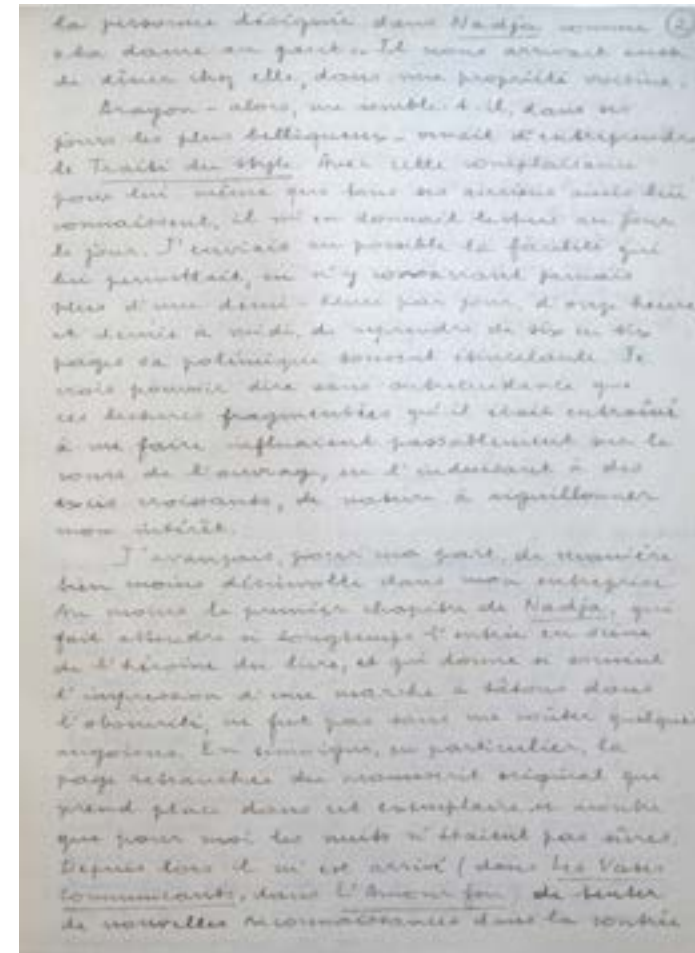 la personne désignée dans Nadja comme (2)
« la dame au gant ». Il nous arrivait aussi
de dîner chez elle, dans une propriété voisine.
Aragon – alors, me semble-t-il, dans ses
jours les plus belliqueux – venait d'entreprendre
le Traité du style. Avec cette complaisance
pour lui-même que tous ses anciens amis lui
connaissent, il m'en donnait lecture au jour
le jour. J'enviais au possible la facilité qui
lui permettait, en n'y consacrant jamais
plus d'une demi-heure par jour, d'onze heures
et demie à midi, de reprendre de six en six
pages sa polémique souvent étincelante. Je
crois pouvoir dire sans outrecuidance que
ces lectures fragmentées qu'il était entraîné
à me faire influaient passablement sur le
cours de l'ouvrage, en l'induisant à des
excès croissants, de nature à aiguillonner
mon intérêt.
J'avançais, pour ma part, de manière
bien moins désinvolte dans mon entreprise.
Au moins le premier chapitre de Nadja, qui
fait attendre si longtemps l'entrée en scène
de l'héroïne du livre, et qui donne si souvent
l'impression d'une marche à tâtons dans
l'obscurité, ne fut pas sans me coûter quelques
angoisses. En témoigne, en particulier, la
page retranchée du manuscrit original qui
prend place dans cet exemplaire et montre
que pour moi les nuits n'étaient pas sûres.
Depuis lors il m'est arrivé (dans Les Vases
Communicants, dans L'Amour fou) de tenter
de nouvelles reconnaissances dans la contrée